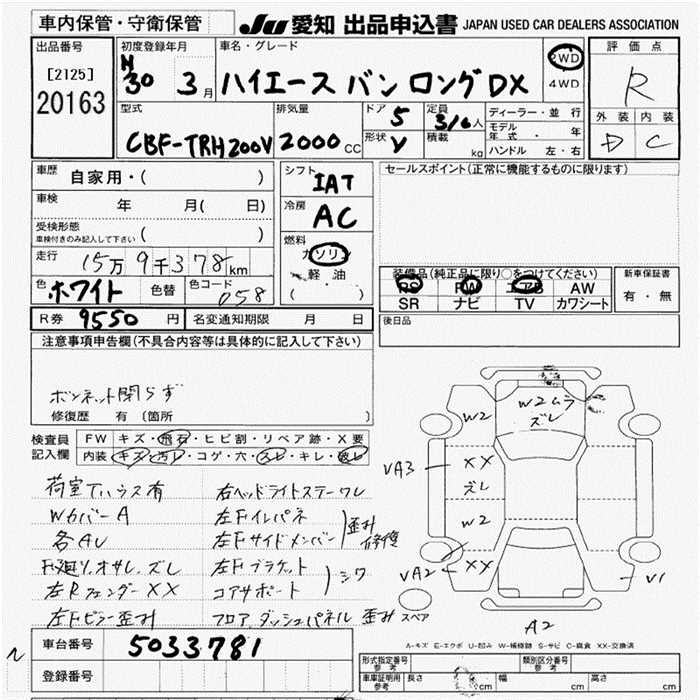 車内保管・守衛保管 JU 愛知 出品申込書 JAPAN USED CAR DEALERS ASSOCIATION
出品番号 初度登録年月 車名・グレード 2WD 評価点
[2125] H30 3月 ハイエース バン ロング DX 4WD R
20163 型式 排気量 ドア 5 定員 3/6人 ディーラー・並行 外装 内装
CBF-TRH200V 2000cc 形状 V 積載 kg モデル年式 ・ 年 D C
ハンドル 左・右
車歴 自家用・( ) シフト IAT セールスポイント(正常に機能するものに限ります)
車検 年 月( 日) 冷房 AC
受検形態 ( )
車検付きのみ記入して下さい
燃料 ガソリン
走行 15万9千378km 軽油
( ・ )
色 ホワイト 色替 色コード 058
装備品(純正品に限り○をつけてください) 新車保証書
PS PW エアB AW 有・無
SR ナビ TV カワシート
R券 9550円 名変通知期限 月 日 後日品
注意事項申告欄(不具合内容等は具体的に記入して下さい)
ボンネット閉らず
修復歴 有(箇所 )
検査員 FW キズ・飛石・ヒビ割・リペア跡・X要
記入欄 内装 キズ・汚レ・コゲ・穴・スレ・キレ・破レ
荷室Tハウス有 右ヘッドライトステーワレ
WカバーA 左Fインパネ
各AU 左Fサイドメンバー 歪み修復
F廻り、オサレ、ズレ 左Fブラケット
左RフェンダーXX コアサポート シワ
左Fピラー歪み フロア、ダッシュパネル 歪み
W2ムラ
ズレ
W2
VA3 XX
ズレ
W2
VA2 XX
V1
スペア
A2
A-キズ E-エクボ U-凹み W-補修跡 S-サビ C-腐食 XX-交換済
車台番号 5033781
登録番号
型式指定番号 参考 類別区分番号 参考
車庫証明用 参考 長さ cm 幅 cm 高さ cm